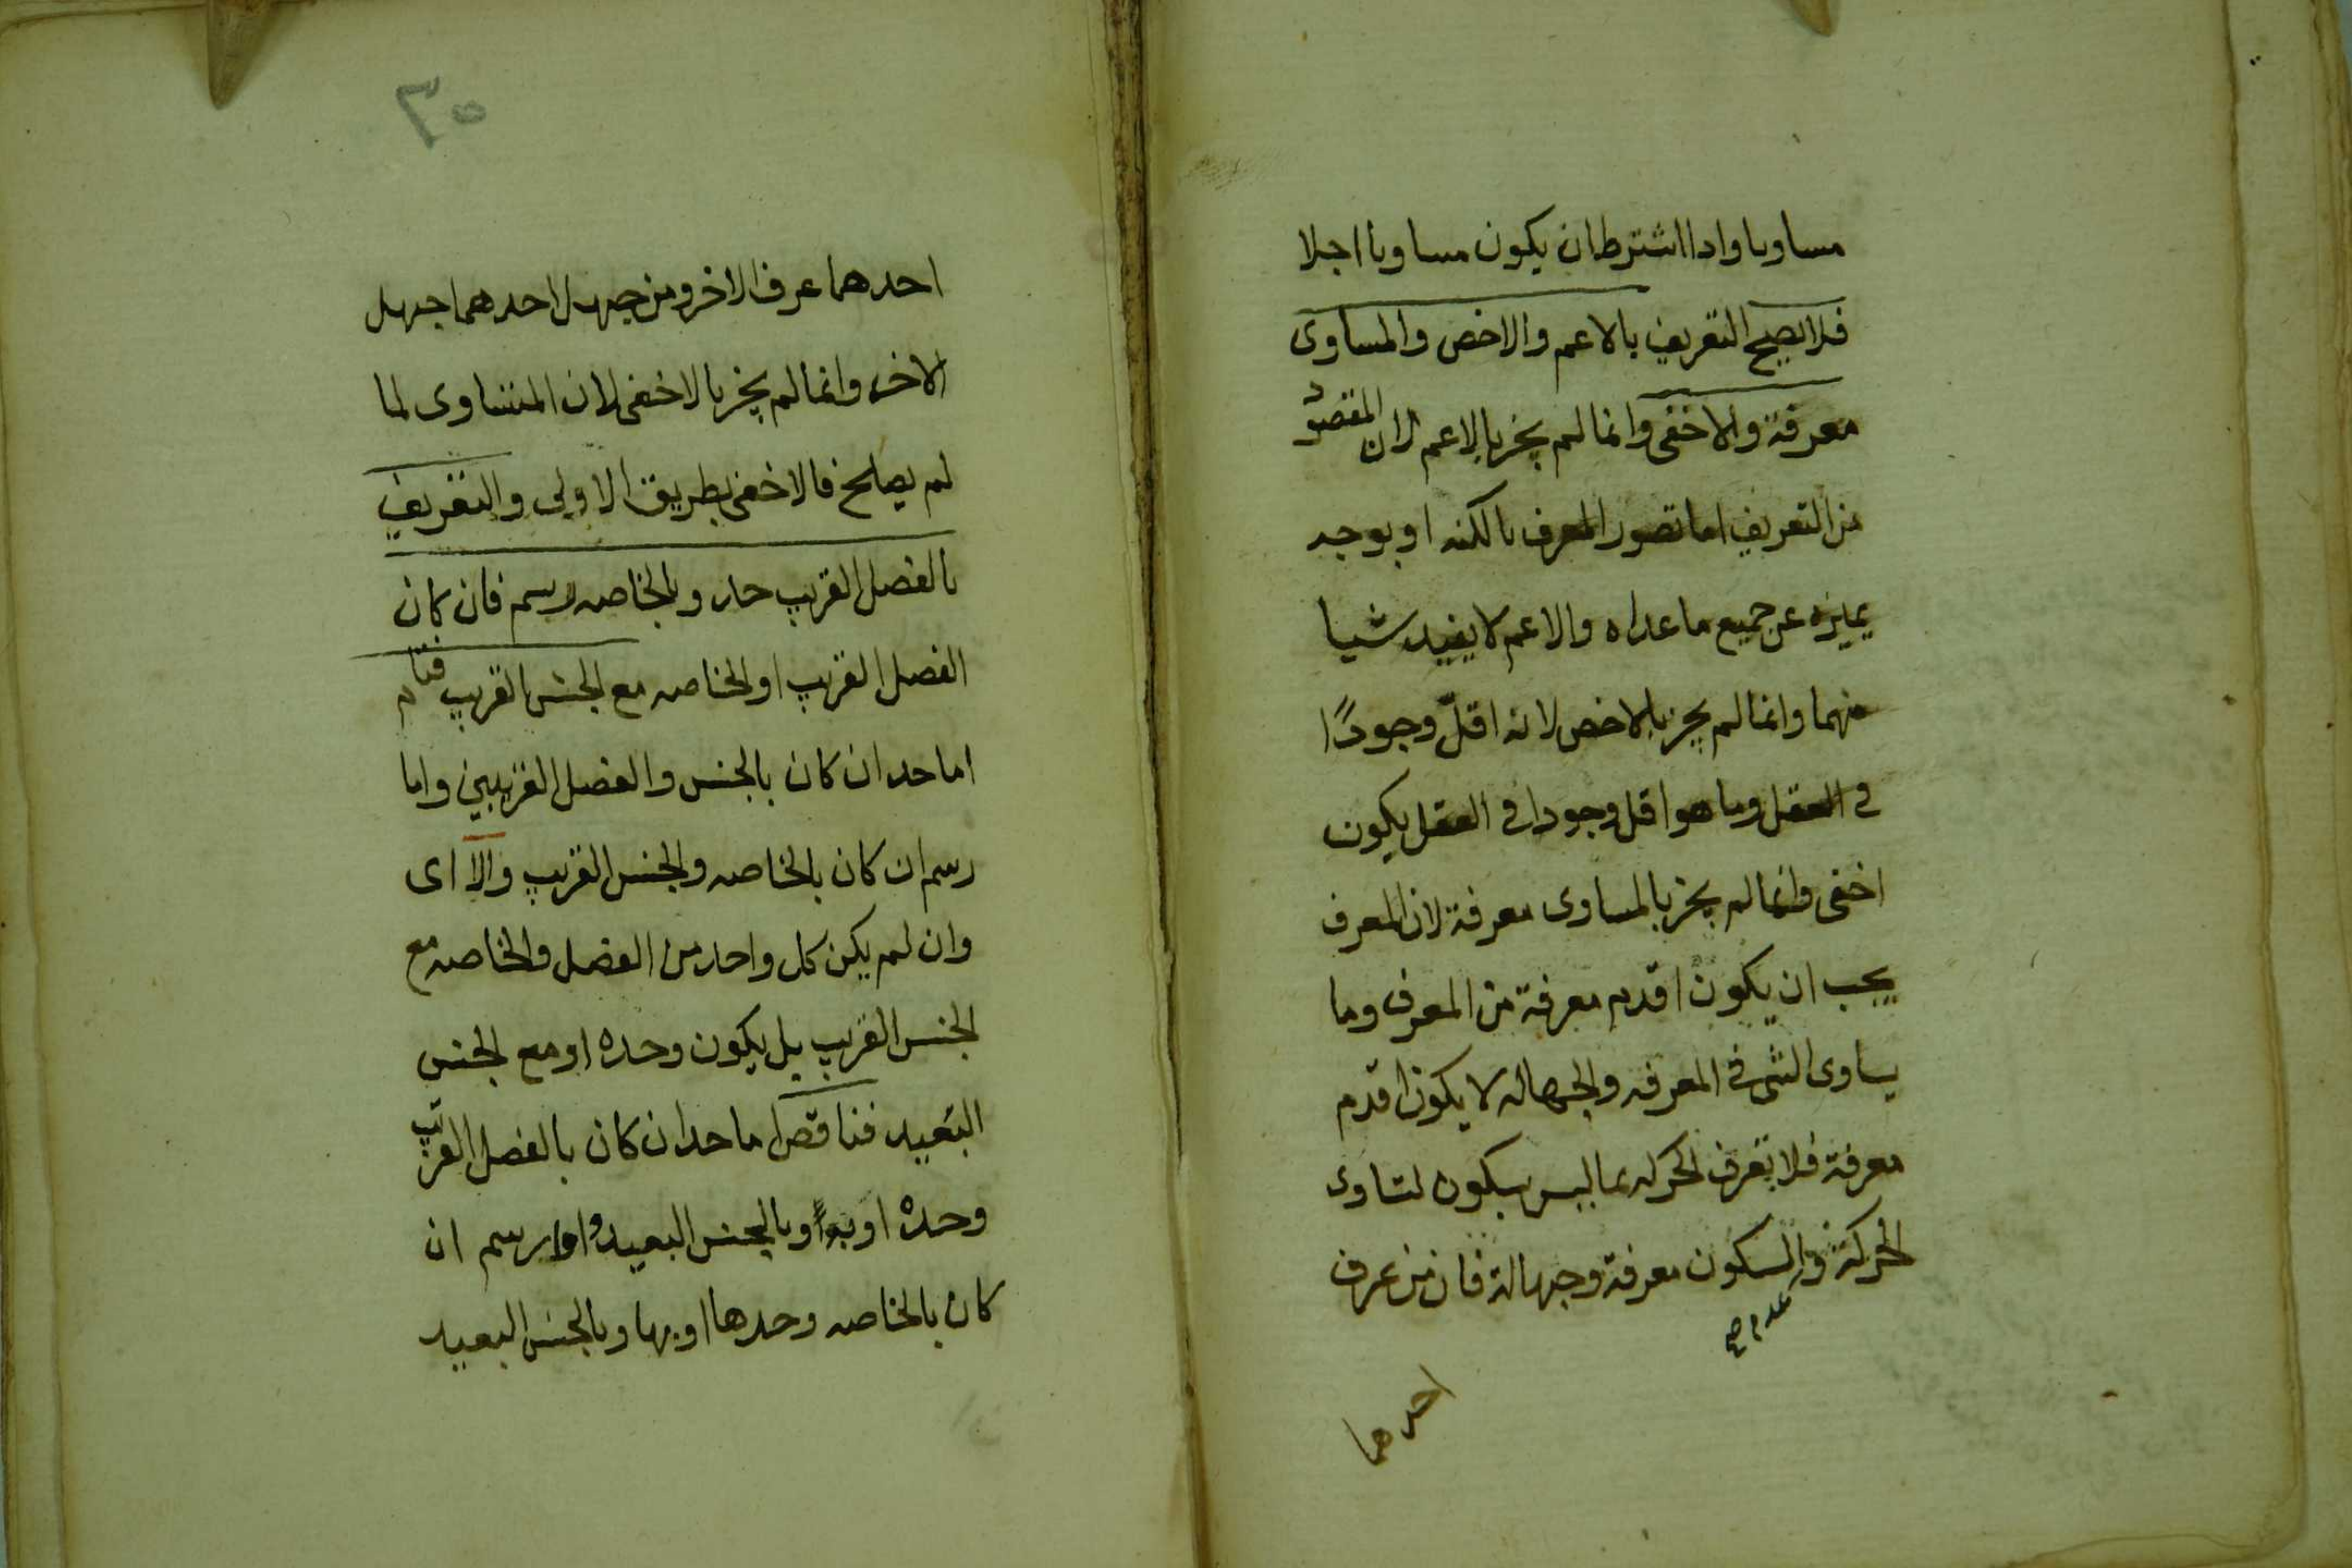 مساويا واذا اشترط ان يكون مساويا اجلا
فلا يصح التعريف بالاعم والاخص والمساوى
معرفة والاخفى وانما لم يجز بالاعم لان المقصود
من التعريف اما تصور المعرف بالكنه او بوجه
يميزه عن جميع ما عداه والاعم لا يفيد شيا
منهما وانما لم يجز بالاخص لانه اقلّ وجودًا
فى العقل وما هو اقل وجودا فى العقل يكون
اخفى وانما لم يجز بالمساوى معرفة لان المعرف
يجب ان يكون اقدم معرفة من المعرف وما
يساوى الشى فى المعرفه والجهاله لا يكون اقدم
معرفة فلا تعرف الحركه بما ليس بسكون لتساوى
الحركة والسكون معرفة وجهالة فان من عرف
عدم صح
احدهما
٣٥
احدهما عرف الاخر ومن جهل احدهما جهل
الاخر وانما لم يجز بالاخفى لان المتساوى لما
لم يصلح فالاخفى بطريق الاولى والتعريف
بالفصل القريب حد وبالخاصه رسم فان كان
الفصل القريب او الخاصه مع الجنس القريب فتام
اما حد ان كان بالجنس والفصل القريبين واما
رسم ان كان بالخاصه والجنس القريب والا اى
وان لم يكن كل واحد من الفصل والخاصه مع
الجنس القريب بل يكون وحده او مع الجنس
البعيد فناقص اما حد ان كان بالفصل القريب
وحده او به وبالجنس البعيد واما رسم ان
كان بالخاصه وحدها او بها وبالجنس البعيد